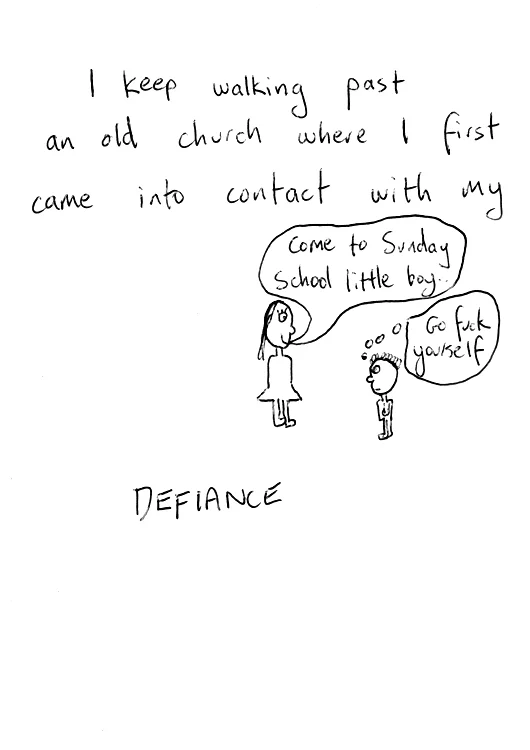 I keep walking past
an old church where I first
came into contact with my
Come to Sunday
School little boy..
Go fuck
yourself
DEFIANCE